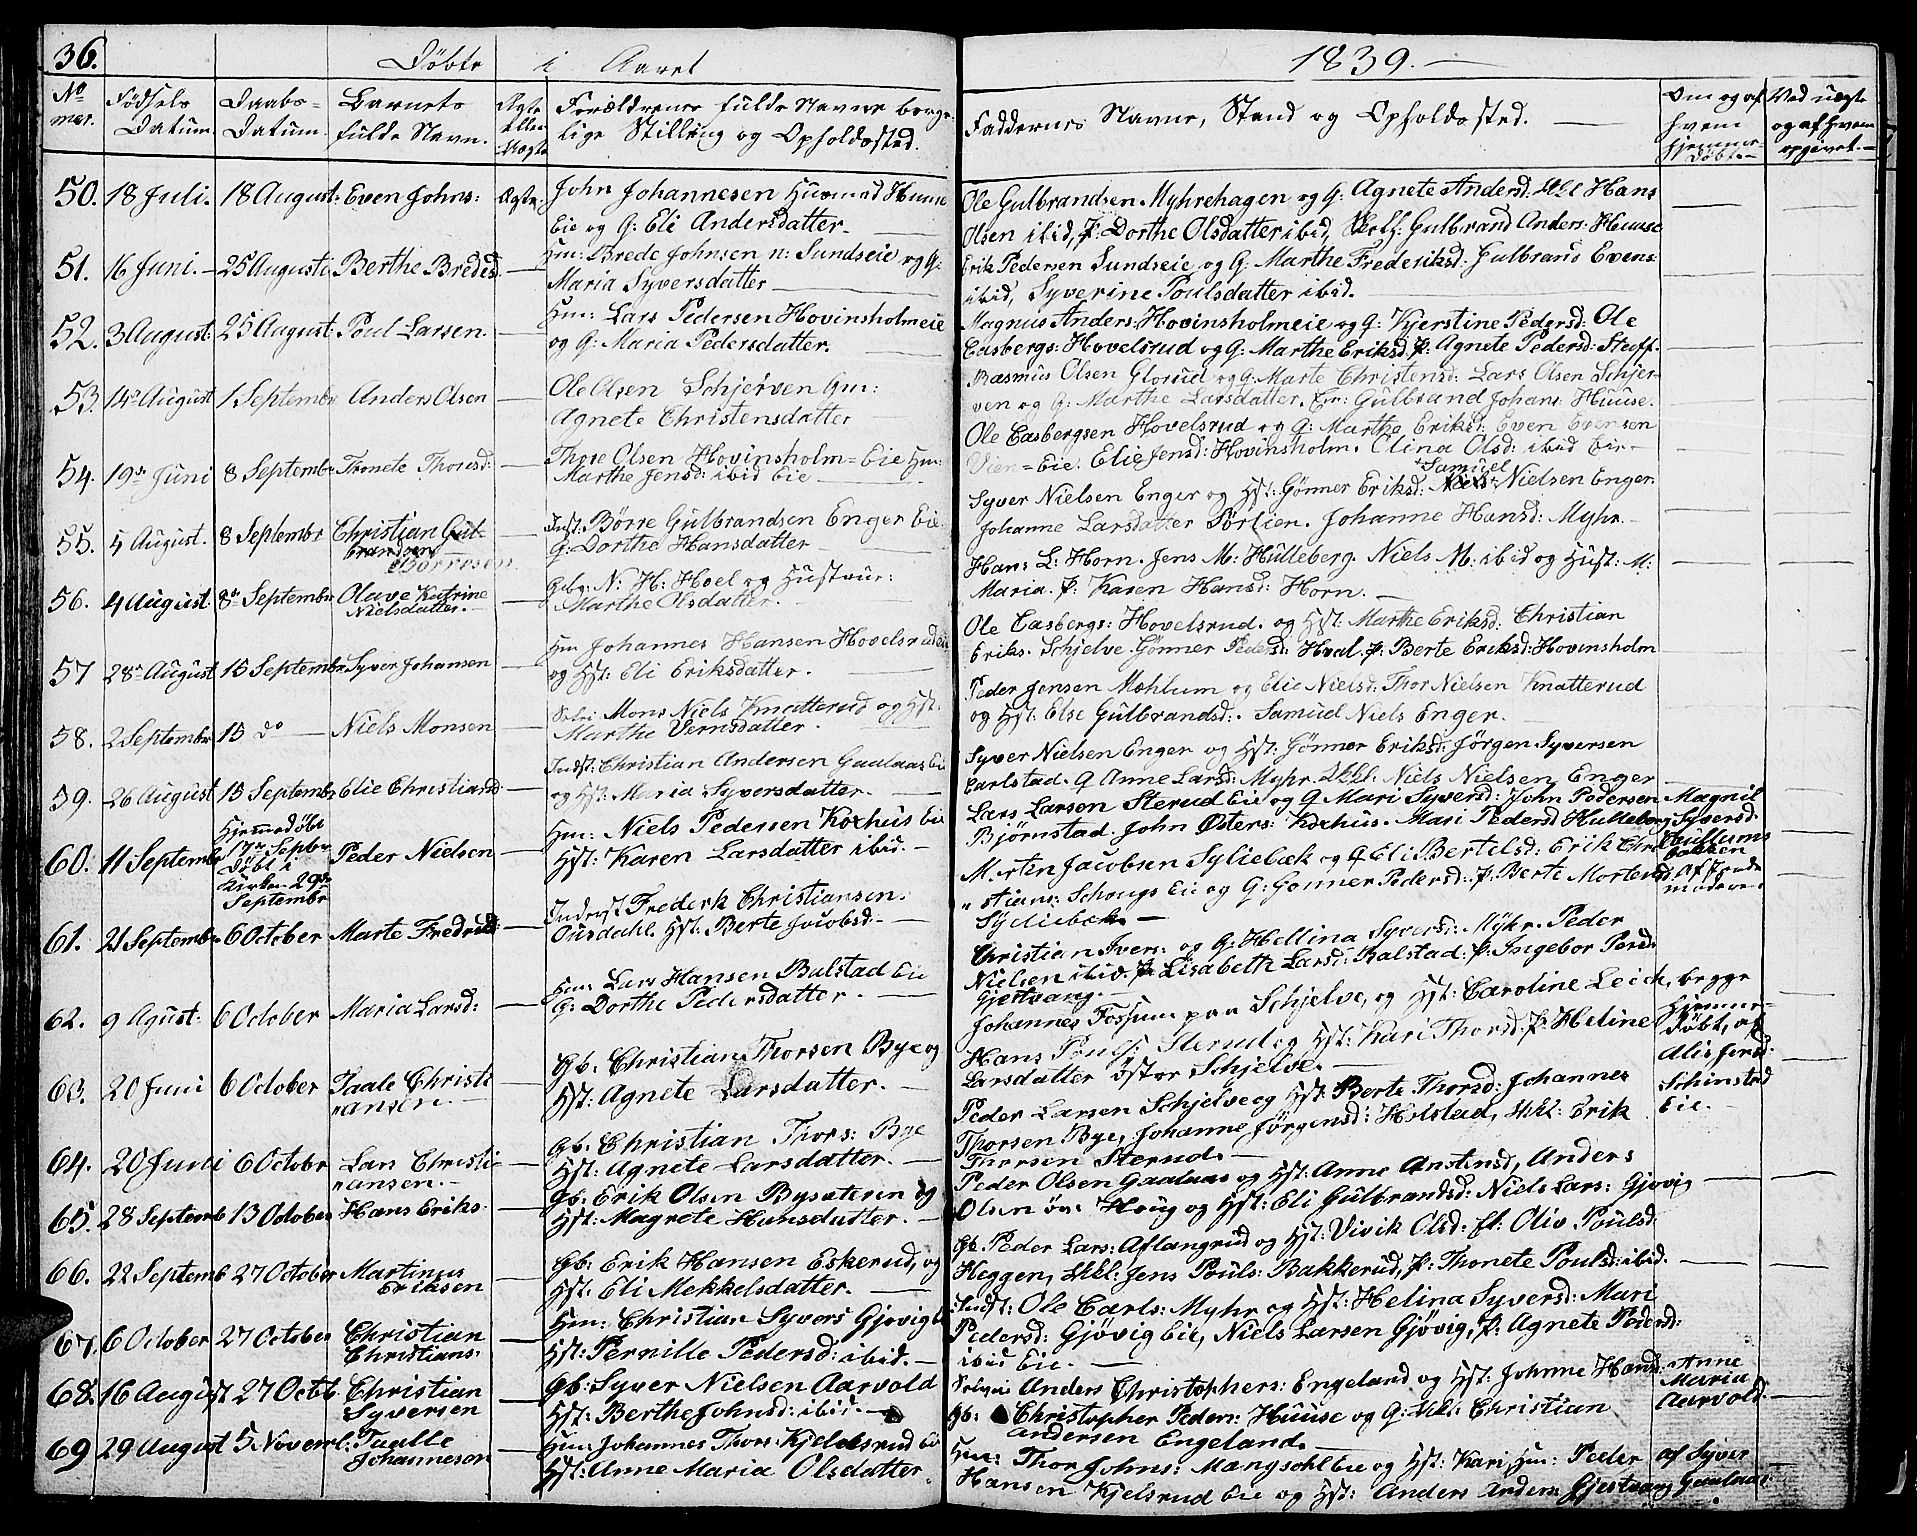 36.
Döbte i Aaret 1839.
No mer. Födsels Datum. Daabs= Datum. Barnets fulde Navn. Ægte eller Uægte Forældrenes fulde Navne borger- lige Stilling og Opholdssted. Faddernes Navne, Stand og Opholdssted. Om og af hvem Hjemme- döbt. Ved uægte og af hvem opgivet.
50. 18 Juli. 18 August: Even Johns: Ægte: John Johannesen Huusmd Huuse
Eie og G: Eli Andersdatter.
Ole Gulbrandsen Myhrehagen og G: Agnete Andersd: Ukl Hans
Olsen ibid, P. Dorthe Olsdatter ibid, Gulbrand Anders: Huuse
51. 16 Juni. 25 Augusti Berthe Bredesd. Hm: Brede Johnsen n: Sundseie og G:
Maria Syversdatter
Erik Pedersen Sundseie og G: Marthe Frederiksd. Gulbrand Evens:
ibid, Syverine Poulsdatter ibid.
52. 3 August: 25 August: Poul Larsen Hm: Lars Pedersen Hovinsholmeie
og G: Maria Pedersdatter.
Magnus Anders: Hovinsholmeie og G: Kjerstine Pedersd: Ole
Casbergs: Hovelsrud og G: Marthe Eriksd: P: Agnete Pedersd: Stuff-
53. 14de August 1 Septembr Anders Olsen Ole Olsen Schjerven Gm:
Agnete Christensdatter
Rasmus Olsen Glorud og G: Marte Christensd: Lars Olsen Schjer-
ven og G: Marthe Larsdatter. Em: Gulbrand Johans: Huuse.
54. 19de Juni 8 Septembr Thonete Thoresd: Thore Olsen Hovinsholm=Eie Hm:
Marthe Jensd: ibid Eie
Ole Casbergsen Hovelsrud og G: Marthe Eriksd: Even Evensen
Vien=Eie. Elie Jensd: Hovinsholm. Elina Olsd: ibid Eie
55. 4 August. 8 Septembr Christian Gul-
brandsen
Börresen
Inst. Börre Gulbrandsen Enger Eie
G: Dorthe Hansdatter
Syver Nielsen Enger og Hst: Gönner Eriksd: Samuel Nielsen Enger.
Johanne Larsdatter Portien. Johanne Hansd: Myhr.
56. 4 August. 8de Septembr Olave Katrine
Nielsdatter.
Gbg: N: H: Hoel og Hustrue:
Marthe Olsdatter.
Hans L: Horn. Jens M: Hulleberg. Niels M: ibid og Hust: M:
Maria. P: Karen Hansd: Horn.
57 28de August 15 Septembr Syver Johansen Hm Johannes Hansen Hovelsrudeie
og Hst: Eli Eriksdatter.
Ole Casbergs: Hovelsrud. og Hst: Marthe Eriksd: Christian
Eriks. Schjelve. Gönner Pedersd: Hval. P: Berte Eriksd: Hovinsholm
58. 2 Septembr 15 do Niels Monsen Selvei Mons Niels Knatterud og Hst:
Marthe Vernsdatter.
Peder Jensen Mæhlum og Elie Nielsd: Thor Nielsen Knatterud
og Hst: Else Gulbrandsd:. Samuel Niels Enger.
59. 26 August 15 Septembr Elie Christiansd Indst: Christian Andersen Gaalaas Eie
og Hst: Maria Syversdatter.
Syver Nielsen Enger og Hst: Gönner Eriksd: Jörgen Syversen
Carlstad. G Anne Larsd: Myhr. Ukl. Niels Nielsen Enger
60. 11 Septembr Hjemmedöbt
17de Septbr
Döbt i
Kirken 29de
Septembr
Peder Nielsen Hm: Niels Pedersen Korhus Eie
Hst: Karen Larsdatter ibid.
Lars Larsen Sterud Eie og G Mari Syversd: John Pedersen
Björnstad. John Østers: Korhus. Mari Pedersd Hulleberg
Magnil
Syversd:
Gullums
bakken
61. 21 Septembr 6 October Marte Fredriksd: Inderst Frederk Christiansen.
Ousdahl. Hst: Berte Jacobsd:
Morten Jacobsen Syliebæk og G Eli Bertelsd: Erik Chri
stians: Schougs Eie og G: Gonner Pedersd: P: Berte Mortensd:
Syliebek.
62. 9 Agust. 6 October Maria Larsd: Hm: Lars Hansen Bulstad Eie
G: Dorthe Pedersdatter.
Christian Ivers: og G: Hellina Syversd: Myhr. Peder
Nielsen ibid. P: Lisabeth Larsd: Balstad. P: Ingebor Persd:
Gjestvang.
63. 20 Juni 6 October Taale Christi
ansen.
Gb. Christian Thorsen Bye og
Hst: Agnete Larsdatter.
Johannes Fossum paa Schjelve, og Hst: Caroline Leick,
Hans Pouls: Sterud og Hst: Kari Thorsd: P: Heline
Larsdatter öster Schjelve.
begge
Hjemme-
döbt, af
Alis Jensd:
Schinstad
Eie.
64. 20 Juni 6 Octobr Lars Christi-
ansen.
Gb: Christian Thors: Bye
Hst: Agnete Larsdatter.
Peder Larsen Schjelve og Hst: Berte Thorsd: Johannes
Thorsen Bye, Johanne Jörgensd: Holstad, Ukl: Erik
Thorsen Sterud.
65. 28 Septemb 13 October Hans Eriks. Gb: Erik Olsen Bysæteren og
Hst: Magrete Hansdatter.
Peder Olsen Gaalaas og Hst: Anne Anstensd, Anders
Olsen öv: Houg og Hst: Eli Gulbrandsd: Niels Lars: Gjövig
66. 22 Septemb 27 October Martinus
Eriksen
Gb: Erik Hansen Eskerud, og
Hst: Eli Mekkelsdatter.
Gb. Peder Lars: Aflangrud og Hst: Vivik Olsd: P: Oliv Poulsd:
Heggen, Ukl: Jens Pouls: Bakkerud, P: Thonete Poulsd: ibid.
67. 6 October 27 October Christian
Christians:
Hm: Christian Syvers Gjövig Eie
Hst: Pernille Pedersd: ibid.
Indst: Ole Carls: Myhr og Hst: Helina Syversd: Mari
Pedersd: Gjövig Eie, Niels Larsen Gjövig, P: Agnete Pedersd:
ibid Eie.
68. 16 August 27 Octb Christian
Syversen
Gb: Syver Nielsen Aarvold
Hst: Berthe Johnsd: ibid.
Selvei Anders Christophers: Engeland og Hst: Johnne Hansd:
Gb: Christopher Peders: Huuse og G: Ukl: Christian
Andersen Engeland.
Anne
Maria
Aarvold.
69 29 August 5 Novemb: Taalle
Johannesen
Hm: Johannes Thors: Kjelsrud Eie
Hst: Anne Maria Olsdatter.
Hm: Thor Johns: Mængsohl Eie og Hst: Kari, Hm: Peder
Hansen Kjelsrud Eie og Hst: Anders Anders: Gjestvang
af Syver
Gaalaas: